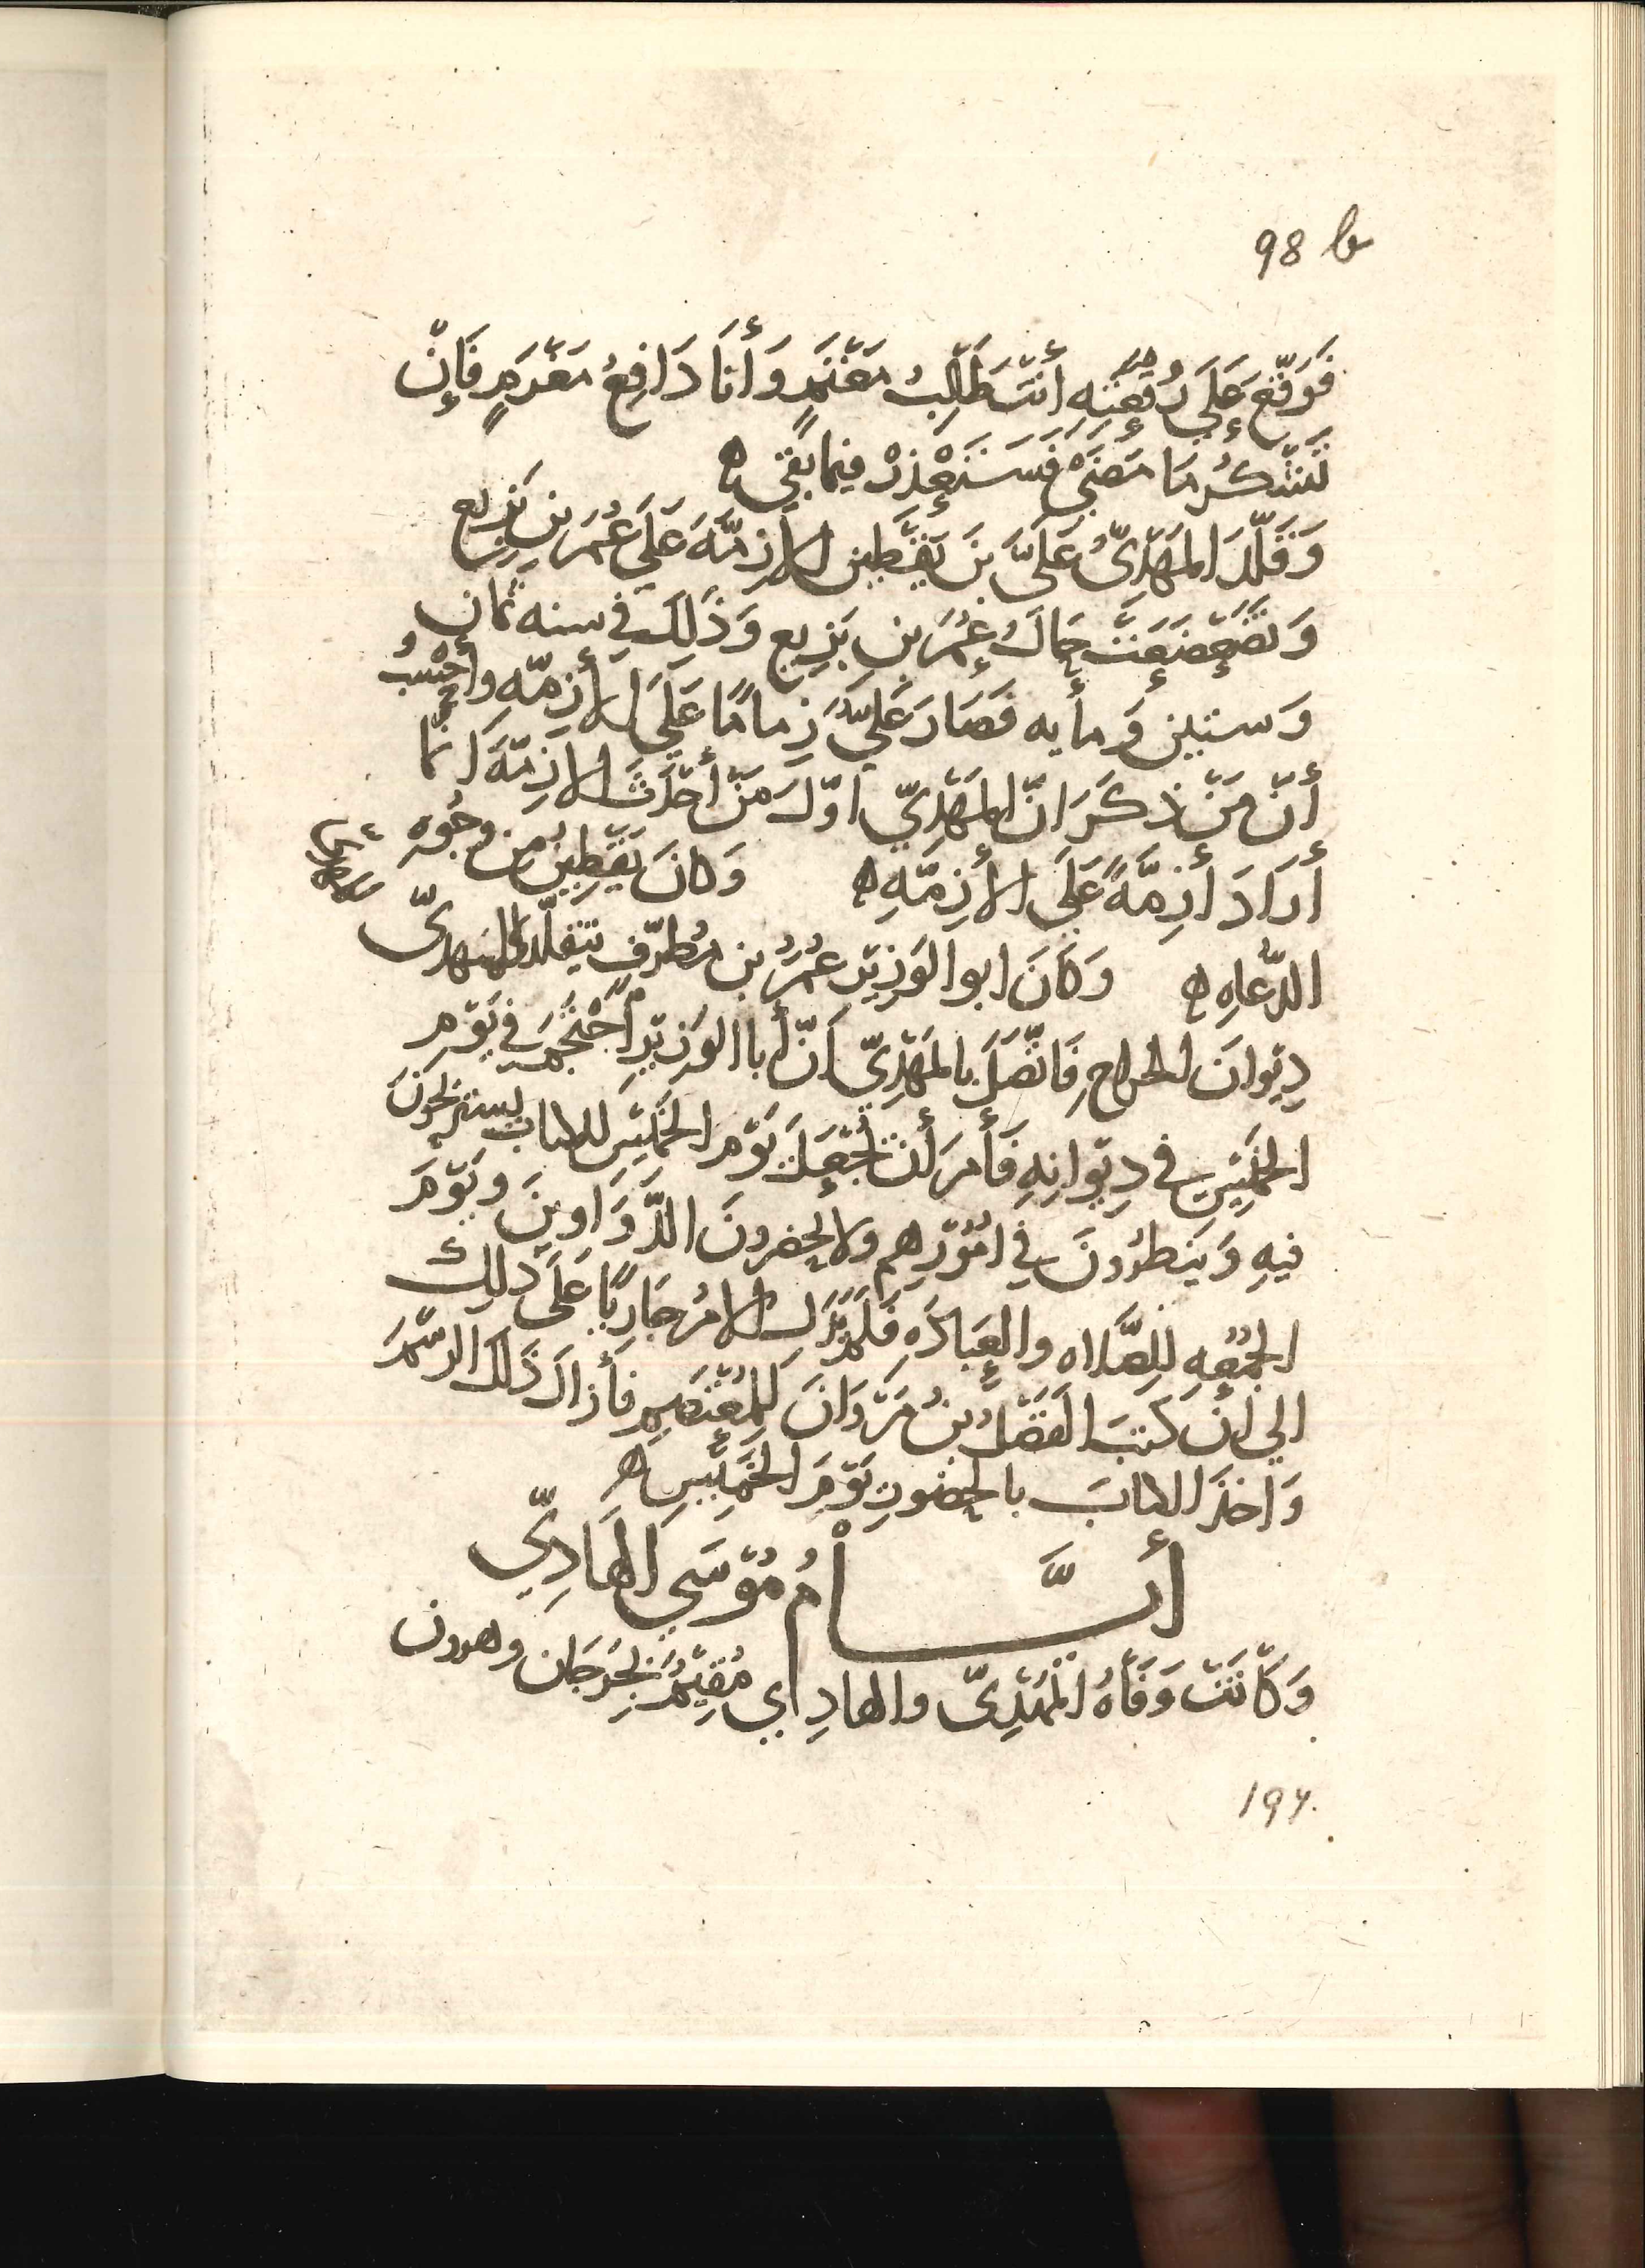 98 b
فَوَقَّعَ عَلَى رُقْعَتِهِ أَنْتَ طَالِبُ مَغْنَمٍ وَأَنَا دَافِعُ مَغْرَمٍ فَإِنْ
تَشْكُرْ مَا مَضَى فَسَنَعْذِرْ فيما بَقِي ه
وَقَلَّدَ المَهْدِيُّ عَلِيَّ بنَ يَقْطِين الأزِمَّةَ عَلَى عُمَرَ بن بَزِيع
وَتَضَعْضَعَتْ حَالُ عُمَرَ بنِ بَزِيع وَذَلِكَ في سنه ثمان
وَستين وَمأيه فَصَارَ عَلِيٌّ زِمامًا عَلَى الأزِمّه وأحْسِبُ
أنّ مَنْ ذكَرَ انّ المَهْدِيّ اوّلُ مَنْ أحْدَثَ الازِمّةَ انّما
أرَادَ أزِمَّةً عَلَى الأزِمّهِ ه وَكانَ يَقْطِينُ من وجُوهِ
الدُّعَاهِ ه وَكَانَ ابو الوَزِيْر عُمَرُ بن مُطَرّفٍ يتقلّد للمهديّ
دِيْوانَ الخراج فَاتَّصَلَ بالمَهْدِيّ أنّ أبا الوَزيْرِ أحْتَجَمَ في يَوْمِ
الخَمِيْسِ في دِيْوانِهِ فَأمَرَ أنْ تُجْعَلَ يَوْمَ الخَمِيْسِ للكتاب يستريحُونَ
فيهِ وَيَنظرُونَ في امُوْرِهم ولا يحضرونَ الدَّوَاوِينَ وَيَوْمَ
الجُمُعهِ للصَّلاه والعِبَادَهِ فَلَمْ يَزَل الامْرُ جَارِيًا عَلَى ذلِكَ
الي انْ كَتَبَ الفَضْلُ بنُ مَرْوَانَ لِلمُعْتَصِمِ فأزالَ ذَلكَ الرسْمَ
وَاخذَ الكتابَ بالحضُورِ يَوْمَ الخَمِيْسِ ه
أيَّــامُ مُوْسَى الهَادِيّ
وَكَانَتْ وَفَاهُ المَهْدِيّ والهادِي مُقِيْمٌ بجُرجَان وهرون
196.